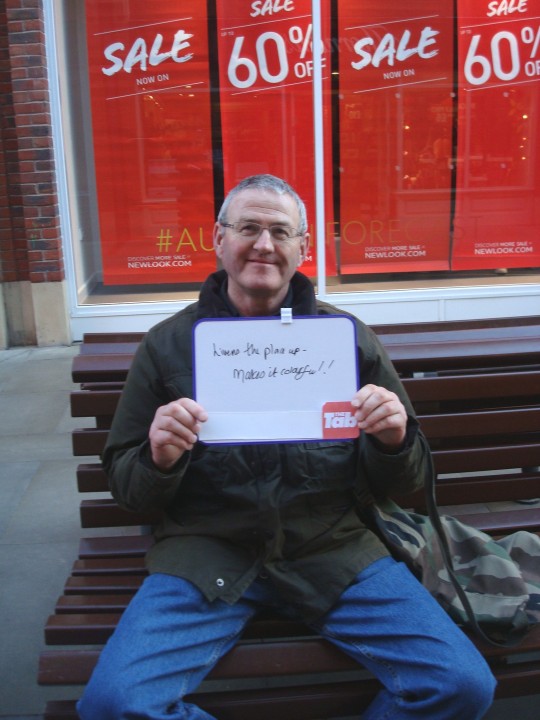 SALE
NOW ON
SALE
UP TO
60%
OFF
SALE
NOW ON
SALE
UP TO
60%
#AU
FORE
DISCOVER MORE SALE at
NEWLOOK.COM
DISCOVER MORE SALE at
NEWLOOK.COM
DISCOVER MORE SALE at
NEWLOOK.COM
the place up -
Makes it colourful!!
The
Tab